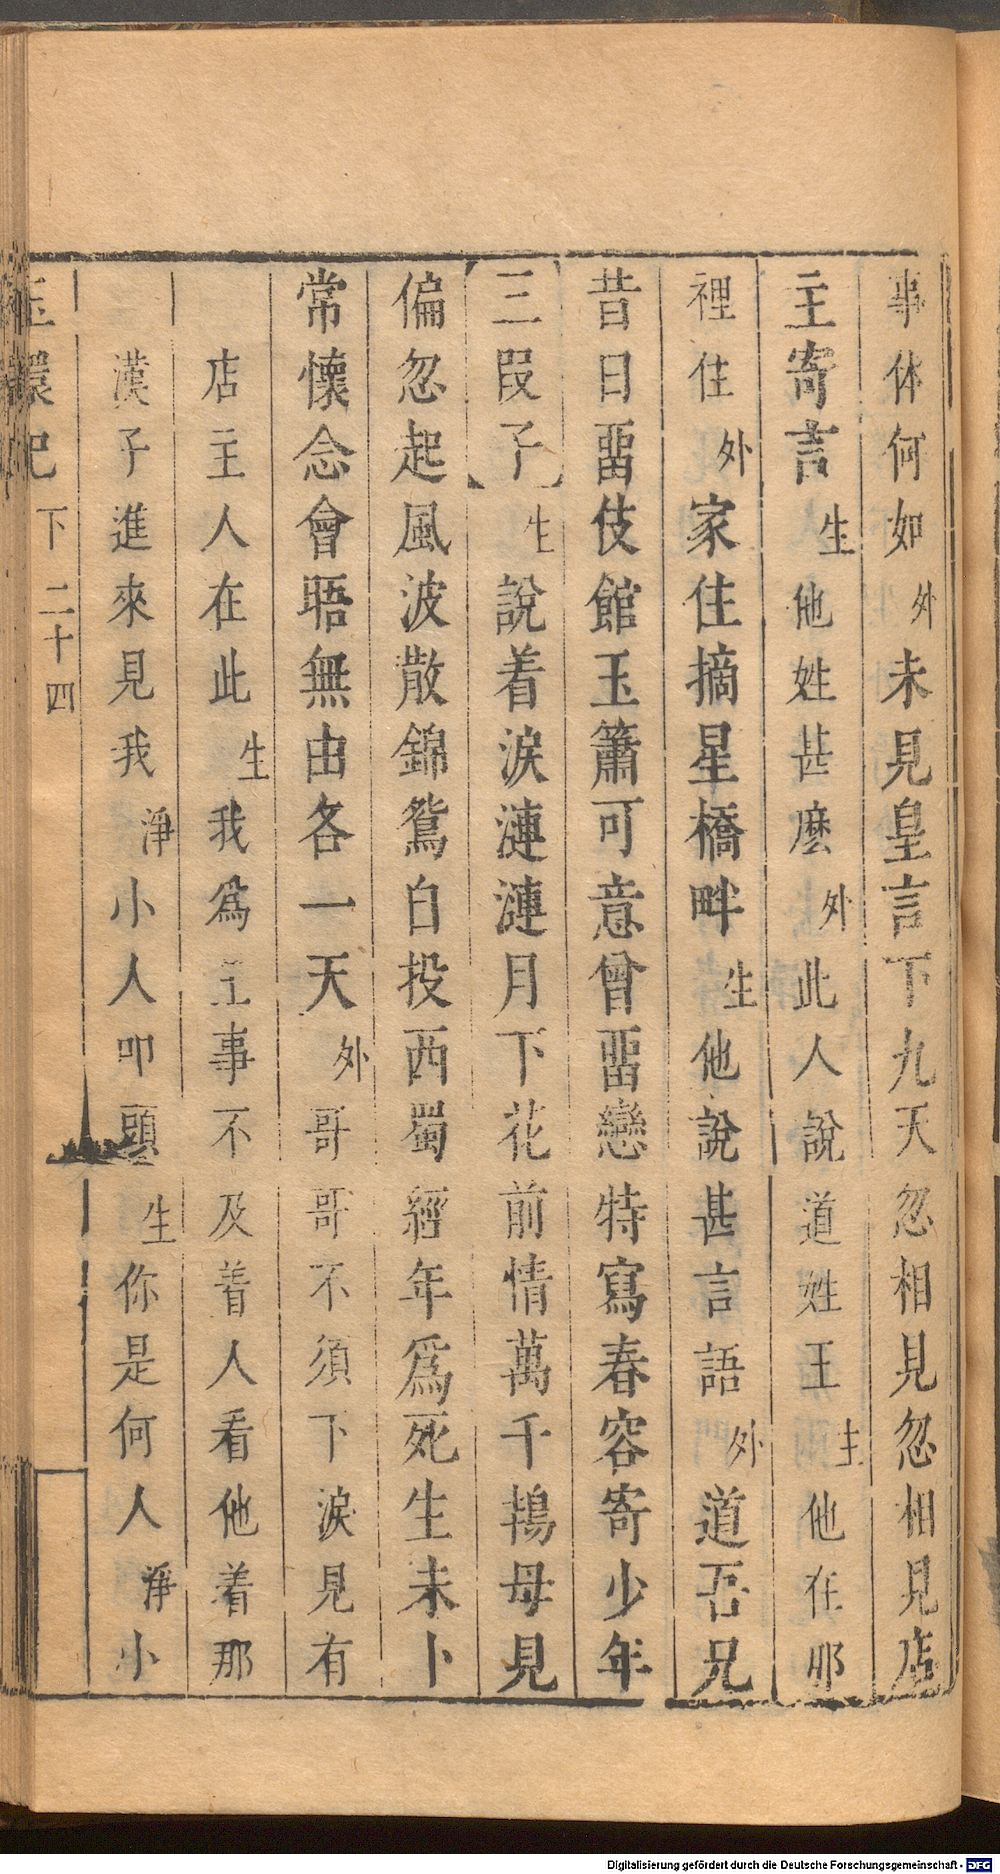 事体何如外未見皇言下九天忽相見忽相見店
主寄言生他姓甚麽外此人說道姓王生他在那
裡住外家住摘星橋畔生他說甚言語外道吾兄
昔日畱伎館玉簫可意曾畱戀特寫春容寄少年
三叚子生說着淚漣漣月下花前情萬千搗母見
偏忽起風波散錦鴛白投西蜀經年爲死生未卜
常懷念會晤無由各一天外哥哥不須下淚見有
店主人在此生我爲主事不及着人看他着那
漢子進來見我淨小人叩頭生你是何人淨小
玉環記 下 二十四
Digitalisierung gefördert durch die Deutsche Forschungsgemeinschaft - DFG